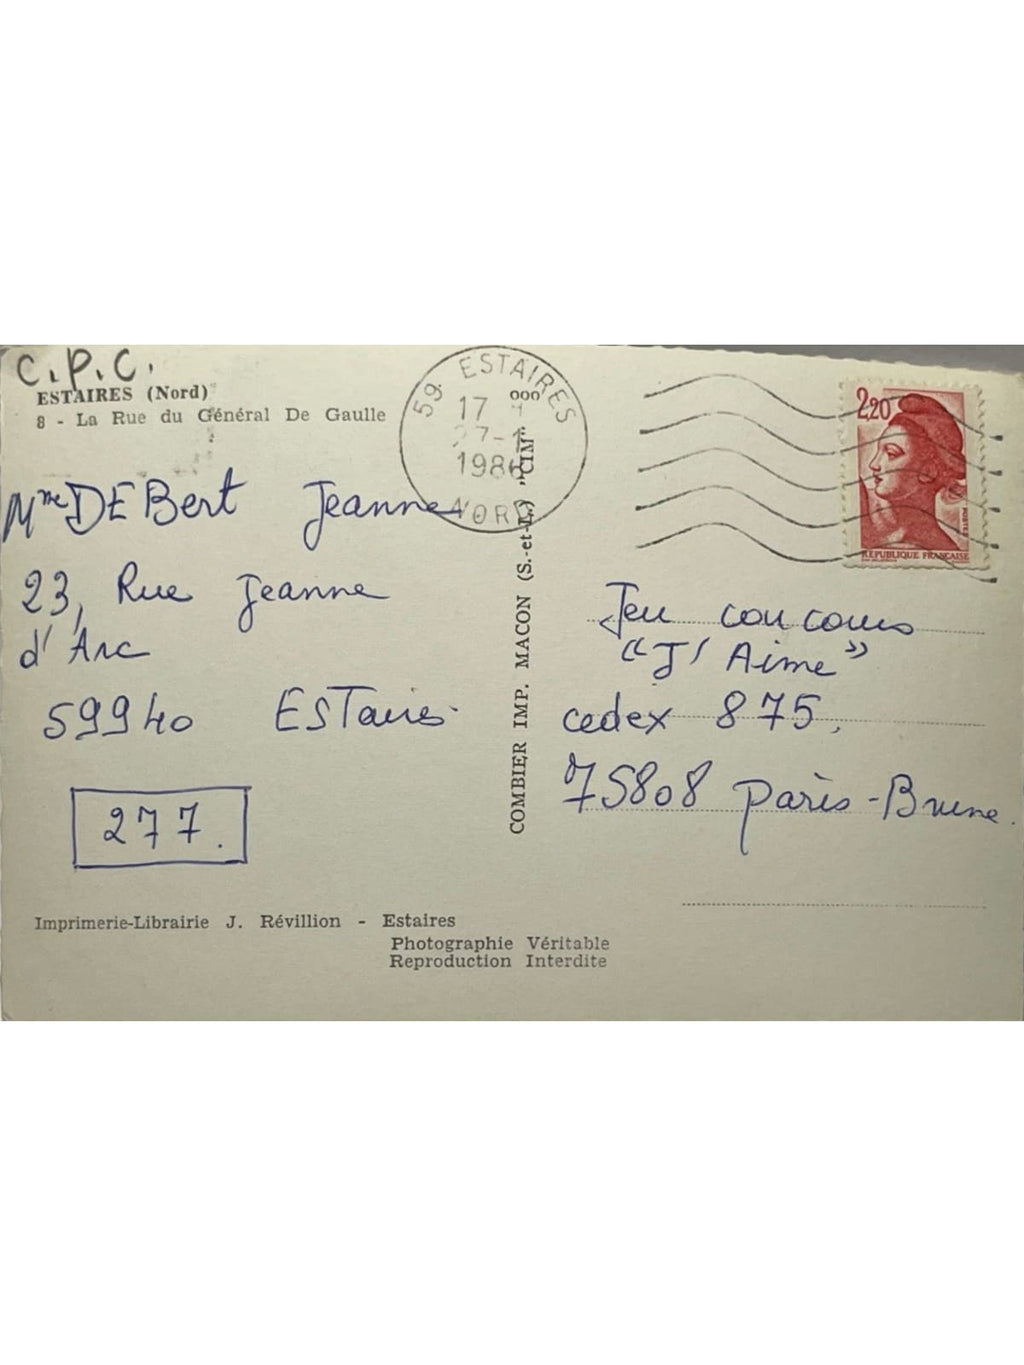 C.P.C.
ESTAIRES (Nord)
8 - La Rue du Général De Gaulle
Mme DEBert Jeanne
23, Rue Jeanne
d'Arc
59940 ESTaires
277.
Imprimerie-Librairie J. Révillion - Estaires
Photographie Véritable
Reproduction Interdite
COMBIER IMP. MACON (S.-et-L.) "CIM"
59 ESTAIRES
17
1986
NORD
2,20
POSTES
REPUBLIQUE FRANÇAISE
Jeu concours
"J'Aime"
cedex 875,
75808 paris-Brune.